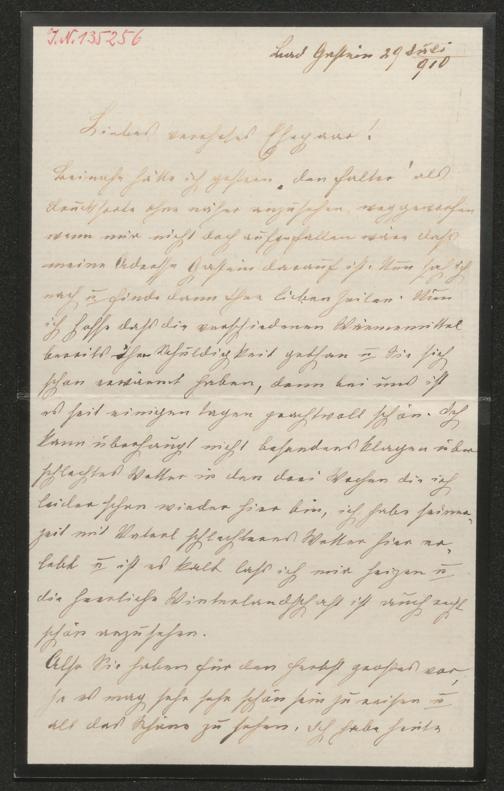 J.N. 135256
Bad Gastein 29 Juli
910
Liebes verehrtes Ehepaar!
Beinahe hätte ich gestern „den Falter" als
Drucksorte ohne näher anzusehen weggeworfen
wenn mir nicht doch aufgefallen wäre daß
meine Adresse Gastein darauf ist. Nun sah ich
nach u finde dann Ihre lieben Zeilen. Nun
ich hoffe daß die verschiedenen Wärmemittel
bereits Ihre Schuldigkeit gethan u Sie sich
schon erwärmt haben, denn bei uns ist
es seit einigen Tagen prachtvoll schön. Ich
kann überhaupt nicht besonders klagen über
schlechtes Wetter in den drei Wochen die ich
leider schon wieder hier bin, ich habe seiner-
zeit mit Vaterl schlechteres Wetter hier er-
lebt u ist es kalt laß ich mir heizen u
die herrliche Winterlandschaft ist auch recht
schön anzusehen.
Also Sie haben für den Herbst großes vor,
ja es mag sehr sehr schön sein zu reisen u
all das Schöne zu sehen. Ich habe heute